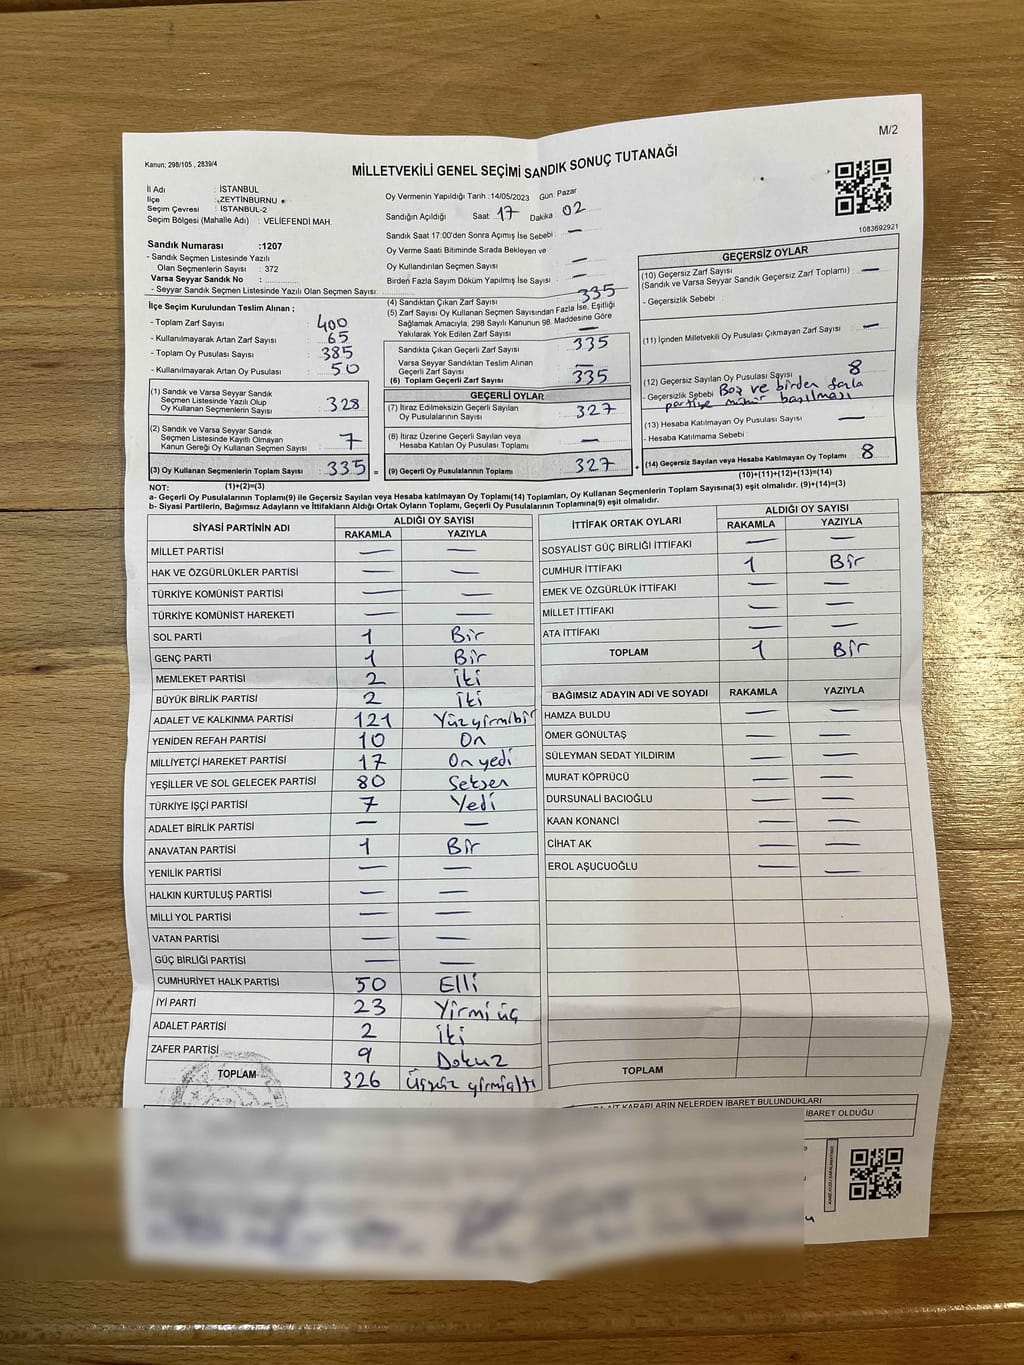 M/2
Kanun; 298/105 , 2839/4
MİLLETVEKİLİ GENEL SEÇİMİ SANDIK SONUÇ TUTANAĞI
İl Adı : İSTANBUL
İlçe : ZEYTİNBURNU
Seçim Çevresi : İSTANBUL-2
Seçim Bölgesi (Mahalle Adı) : VELİEFENDİ MAH.
Sandık Numarası :1207
- Sandık Seçmen Listesinde Yazılı
Olan Seçmenlerin Sayısı : 372
Varsa Seyyar Sandık No :
- Seyyar Sandık Seçmen Listesinde Yazılı Olan Seçmen Sayısı:
Oy Vermenin Yapıldığı Tarih : 14/05/2023 Gün: Pazar
Sandığın Açıldığı Saat: 17 Dakika : 02
Sandık Saat 17:00'den Sonra Açımış İse Sebebi : —
Oy Verme Saati Bitiminde Sırada Bekleyen ve
Oy Kullandırılan Seçmen Sayısı —
Birden Fazla Sayım Döküm Yapılmış İse Sayısı : —
1083692921
İlçe Seçim Kurulundan Teslim Alınan ;
- Toplam Zarf Sayısı : 400
- Kullanılmayarak Artan Zarf Sayısı : 65
- Toplam Oy Pusulası Sayısı : 385
- Kullanılmayarak Artan Oy Pusulası : 50
(1) Sandık ve Varsa Seyyar Sandık
Seçmen Listesinde Yazılı Olup
Oy Kullanan Seçmenlerin Sayısı : 328
(2) Sandık ve Varsa Seyyar Sandık
Seçmen Listesinde Kayıtlı Olmayan
Kanun Gereği Oy Kullanan Seçmen Sayısı : 7
(3) Oy Kullanan Seçmenlerin Toplam Sayısı : 335 =
(1)+(2)=(3)
(4) Sandıktan Çıkan Zarf Sayısı : 335
(5) Zarf Sayısı Oy Kullanan Seçmen Sayısından Fazla İse, Eşitliği
Sağlamak Amacıyla, 298 Sayılı Kanunun 98. Maddesine Göre
Yakılarak Yok Edilen Zarf Sayısı : —
Sandıkta Çıkan Geçerli Zarf Sayısı : 335
Varsa Seyyar Sandıktan Teslim Alınan
Geçerli Zarf Sayısı : —
(6) Toplam Geçerli Zarf Sayısı : 335
GEÇERLİ OYLAR
(7) İtiraz Edilmeksizin Geçerli Sayılan
Oy Pusulalarının Sayısı : 327
(8) İtiraz Üzerine Geçerli Sayılan veya
Hesaba Katılan Oy Pusulası Toplamı : —
(9) Geçerli Oy Pusulalarının Toplamı : 327 +
GEÇERSİZ OYLAR
(10) Geçersiz Zarf Sayısı : —
(Sandık ve Varsa Seyyar Sandık Geçersiz Zarf Toplamı)
- Geçersizlik Sebebi :
(11) İçinden Milletvekili Oy Pusulası Çıkmayan Zarf Sayısı : —
(12) Geçersiz Sayılan Oy Pusulası Sayısı : 8
- Geçersizlik Sebebi : Boş ve birden fazla
partiye mühür basılması
(13) Hesaba Katılmayan Oy Pusulası Sayısı : —
- Hesaba Katılmama Sebebi :
(14) Geçersiz Sayılan veya Hesaba Katılmayan Oy Toplamı : 8
(10)+(11)+(12)+(13)=(14)
NOT:
a- Geçerli Oy Pusulalarının Toplamı(9) ile Geçersiz Sayılan veya Hesaba katılmayan Oy Toplamı(14) Toplamları, Oy Kullanan Seçmenlerin Toplam Sayısına(3) eşit olmalıdır. (9)+(14)=(3)
b- Siyasi Partilerin, Bağımsız Adayların ve İttifakların Aldığı Ortak Oyların Toplamı, Geçerli Oy Pusulalarının Toplamına(9) eşit olmalıdır.
SİYASİ PARTİNİN ADI ALDIĞI OY SAYISI
RAKAMLA YAZIYLA
MİLLET PARTİSİ — —
HAK VE ÖZGÜRLÜKLER PARTİSİ — —
TÜRKİYE KOMÜNİST PARTİSİ — —
TÜRKİYE KOMÜNİST HAREKETİ — —
SOL PARTİ 1 Bir
GENÇ PARTİ 1 Bir
MEMLEKET PARTİSİ 2 İki
BÜYÜK BİRLİK PARTİSİ 2 İki
ADALET VE KALKINMA PARTİSİ 121 Yüzyirmibir
YENİDEN REFAH PARTİSİ 10 On
MİLLİYETÇİ HAREKET PARTİSİ 17 On yedi
YEŞİLLER VE SOL GELECEK PARTİSİ 80 Seksen
TÜRKİYE İŞÇİ PARTİSİ 7 Yedi
ADALET BİRLİK PARTİSİ — —
ANAVATAN PARTİSİ 1 Bir
YENİLİK PARTİSİ — —
HALKIN KURTULUŞ PARTİSİ — —
MİLLİ YOL PARTİSİ — —
VATAN PARTİSİ — —
GÜÇ BİRLİĞİ PARTİSİ — —
CUMHURİYET HALK PARTİSİ 50 Elli
İYİ PARTİ 23 Yirmi üç
ADALET PARTİSİ 2 İki
ZAFER PARTİSİ 9 Dokuz
TOPLAM 326 Üçyüz yirmialtı
İTTİFAK ORTAK OYLARI ALDIĞI OY SAYISI
RAKAMLA YAZIYLA
SOSYALİST GÜÇ BİRLİĞİ İTTİFAKI — —
CUMHUR İTTİFAKI 1 Bir
EMEK VE ÖZGÜRLÜK İTTİFAKI — —
MİLLET İTTİFAKI — —
ATA İTTİFAKI — —
TOPLAM 1 Bir
BAĞIMSIZ ADAYIN ADI VE SOYADI RAKAMLA YAZIYLA
HAMZA BULDU — —
ÖMER GÖNÜLTAŞ — —
SÜLEYMAN SEDAT YILDIRIM — —
MURAT KÖPRÜCÜ — —
DURSUNALİ BACIOĞLU — —
KAAN KONANCİ — —
CİHAT AK — —
EROL AŞUCUOĞLU — —
TOPLAM
KARARLARIN NELERDEN İBARET BULUNDUKLARI
İBARET OLDUĞU